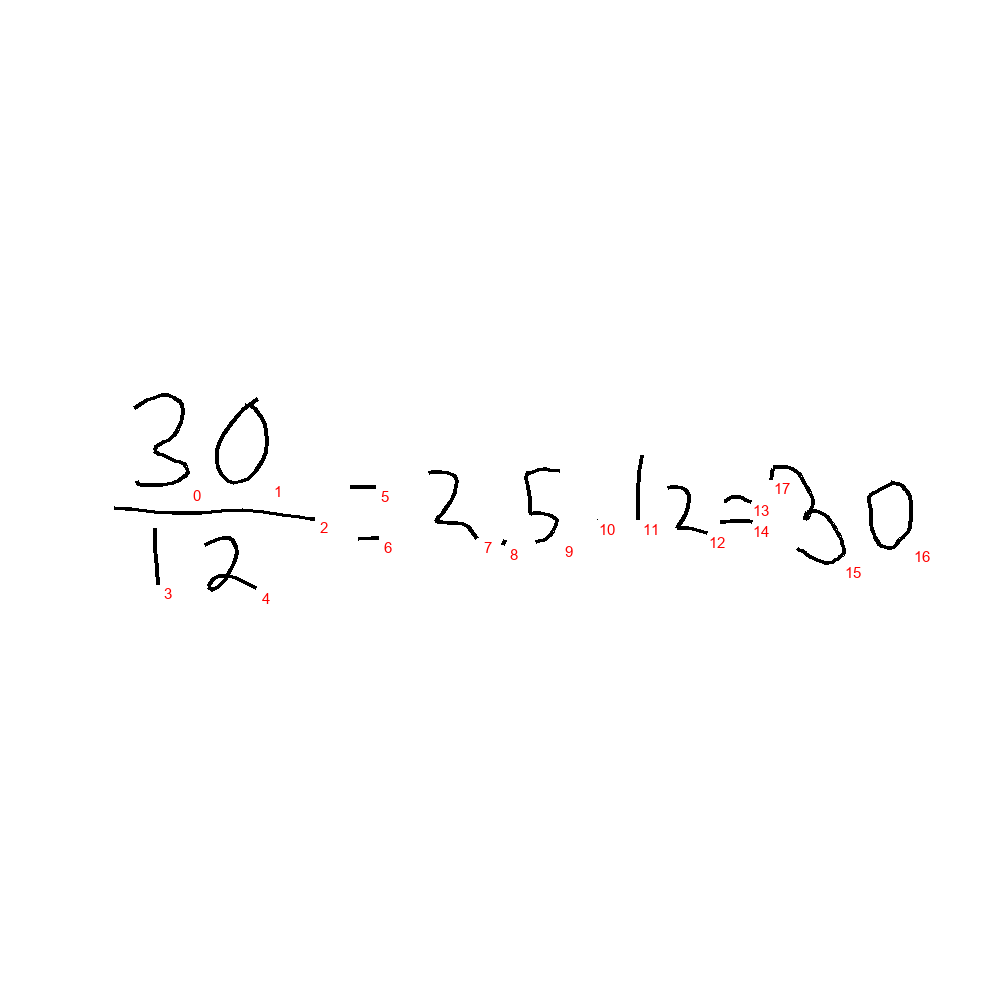 \frac{30}{12} = 2.5 \cdot 12 = 30
0 1 2 3 4 5 6 7 8 9 10 11 12 13 14 15 16 17